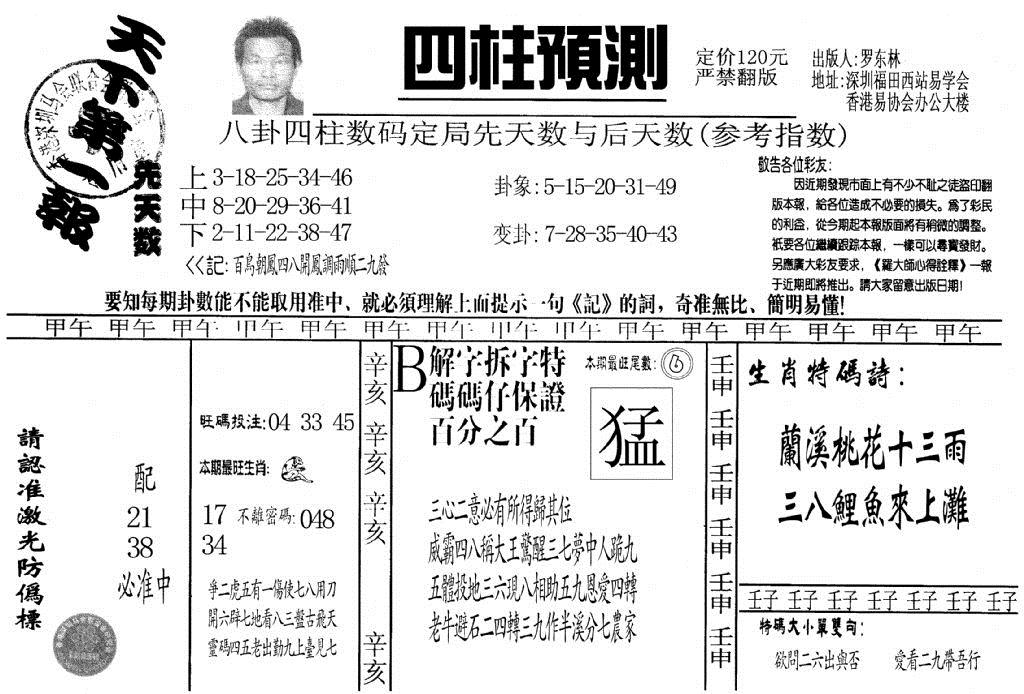 天下第一報
先天数
四柱預測
定价120元
严禁翻版
出版人:罗东林
地址:深圳福田西站易学会
香港易协会办公大楼
八卦四柱数码定局先天数与后天数(参考指数)
上 3-18-25-34-46
中 8-20-29-36-41
下 2-11-22-38-47
<<記:百鳥朝鳳四八開鳳調雨順二九發
卦象:5-15-20-31-49
变卦:7-28-35-40-43
敬告各位彩友:
因近期發現市面上有不少不耻之徒盜印翻
版本報,給各位造成不必要的損失。爲了彩民
的利益,從今期起本報版面將有稍微的調整。
衹要各位繼續跟踪本報,一樣可以尋寶發財。
另應廣大彩友要求,《羅大師心得詮釋》一報
于近期即將推出。請大家留意出版日期!
要知每期卦數能不能取用准中、就必須理解上面提示一句《記》的詞,奇准無比、簡明易懂!
甲午 甲午 甲午 甲午 甲午 甲午 甲午 甲午 甲午 甲午 甲午 甲午 甲午 甲午 甲午
請認准激光防僞標
配
21
38
必准中
旺碼投注:04 33 45
本期最旺生肖:
17 不離密碼:048
34
爭二虎五有一傷使七八用刀
開六辟七地看八三盤古飛天
靈碼四五老出勤九上臺見七
辛亥 辛亥 辛亥 辛亥
B 解字拆字特
碼碼仔保證
百分之百
本期最旺尾數:6
猛
三心二意必有所得歸其位
威霸四八稱大王驚醒三七夢中人跪九
五體投地三六現八相助五九恩愛四轉
老牛避石二四轉三九作半溪分七農家
壬申 壬申 壬申 壬申 壬申 壬申
生肖特碼詩:
蘭溪桃花十三雨
三八鯉魚來上灘
壬子 壬子 壬子 壬子 壬子 壬子 壬子
特碼大小單雙句:
欲問二六出與否 愛看二九帶吾行